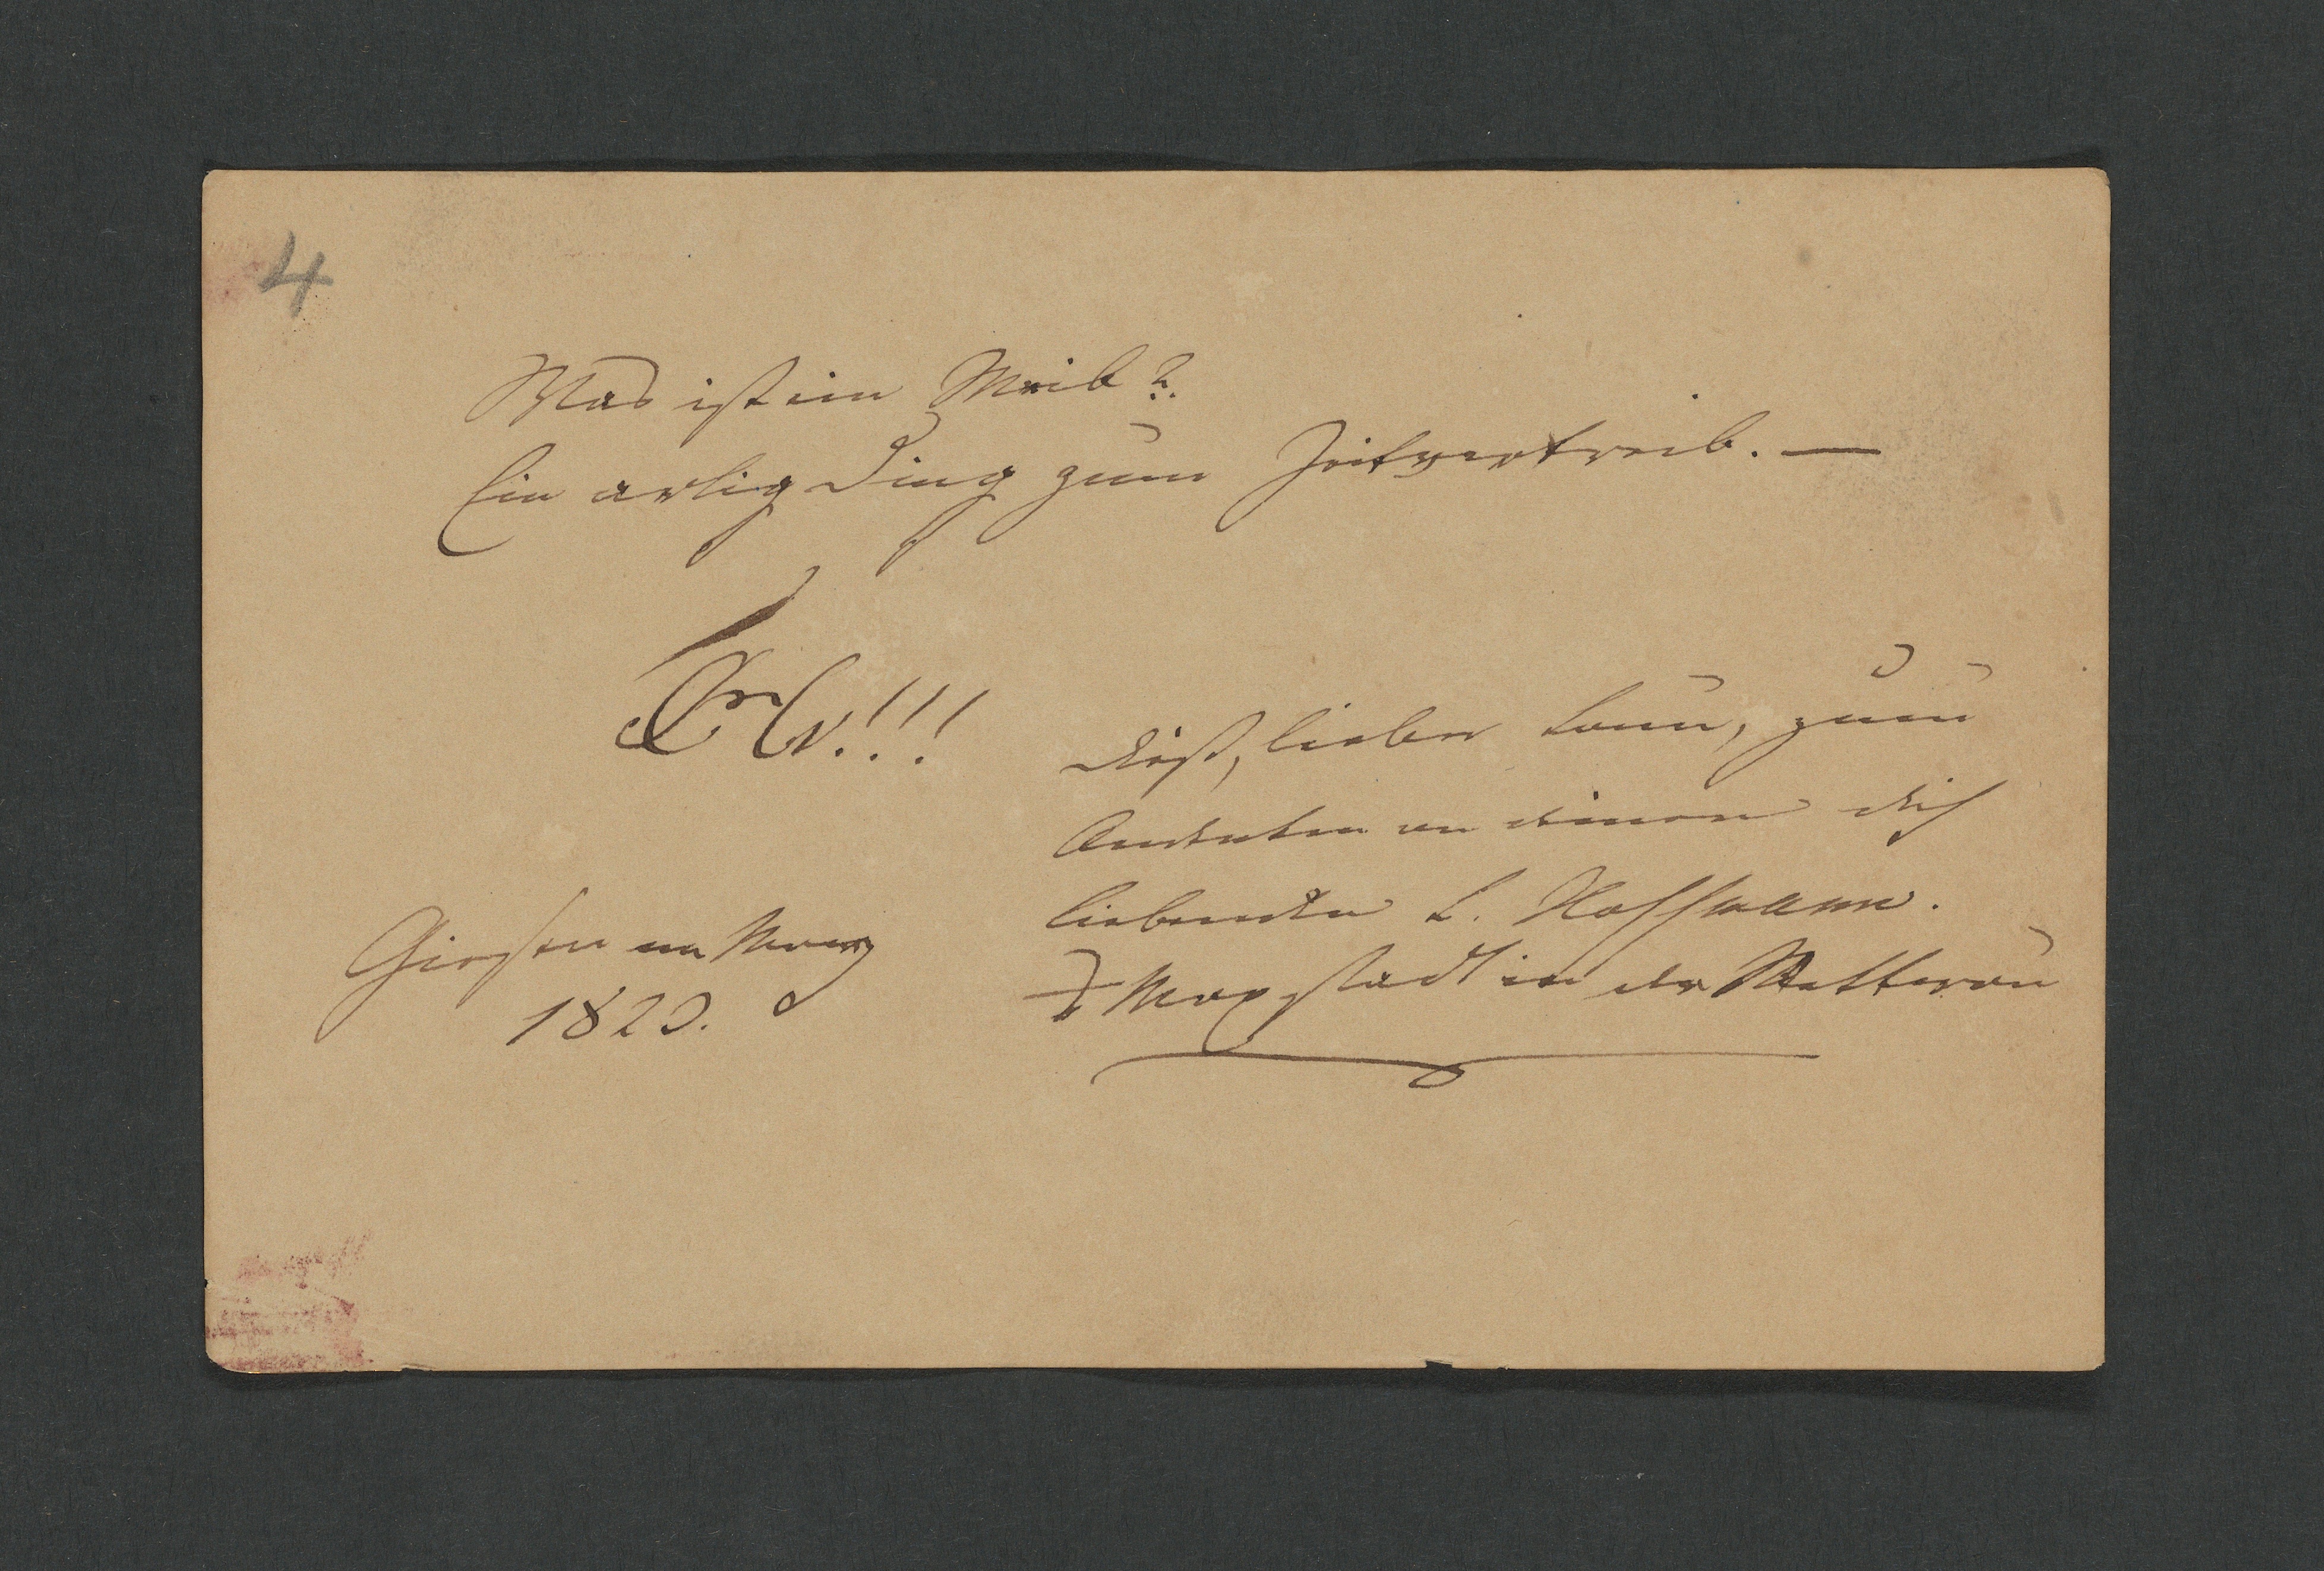 4
Was ist ein Weib?
Ein artig Ding zum Zeitvertreib. —
!!!
Dieß, lieber Braun, zum
Andenken an deinen dich
liebenden L. Hoffmann.
Giessen im Maerz
1820.
stadt in der Wetterau